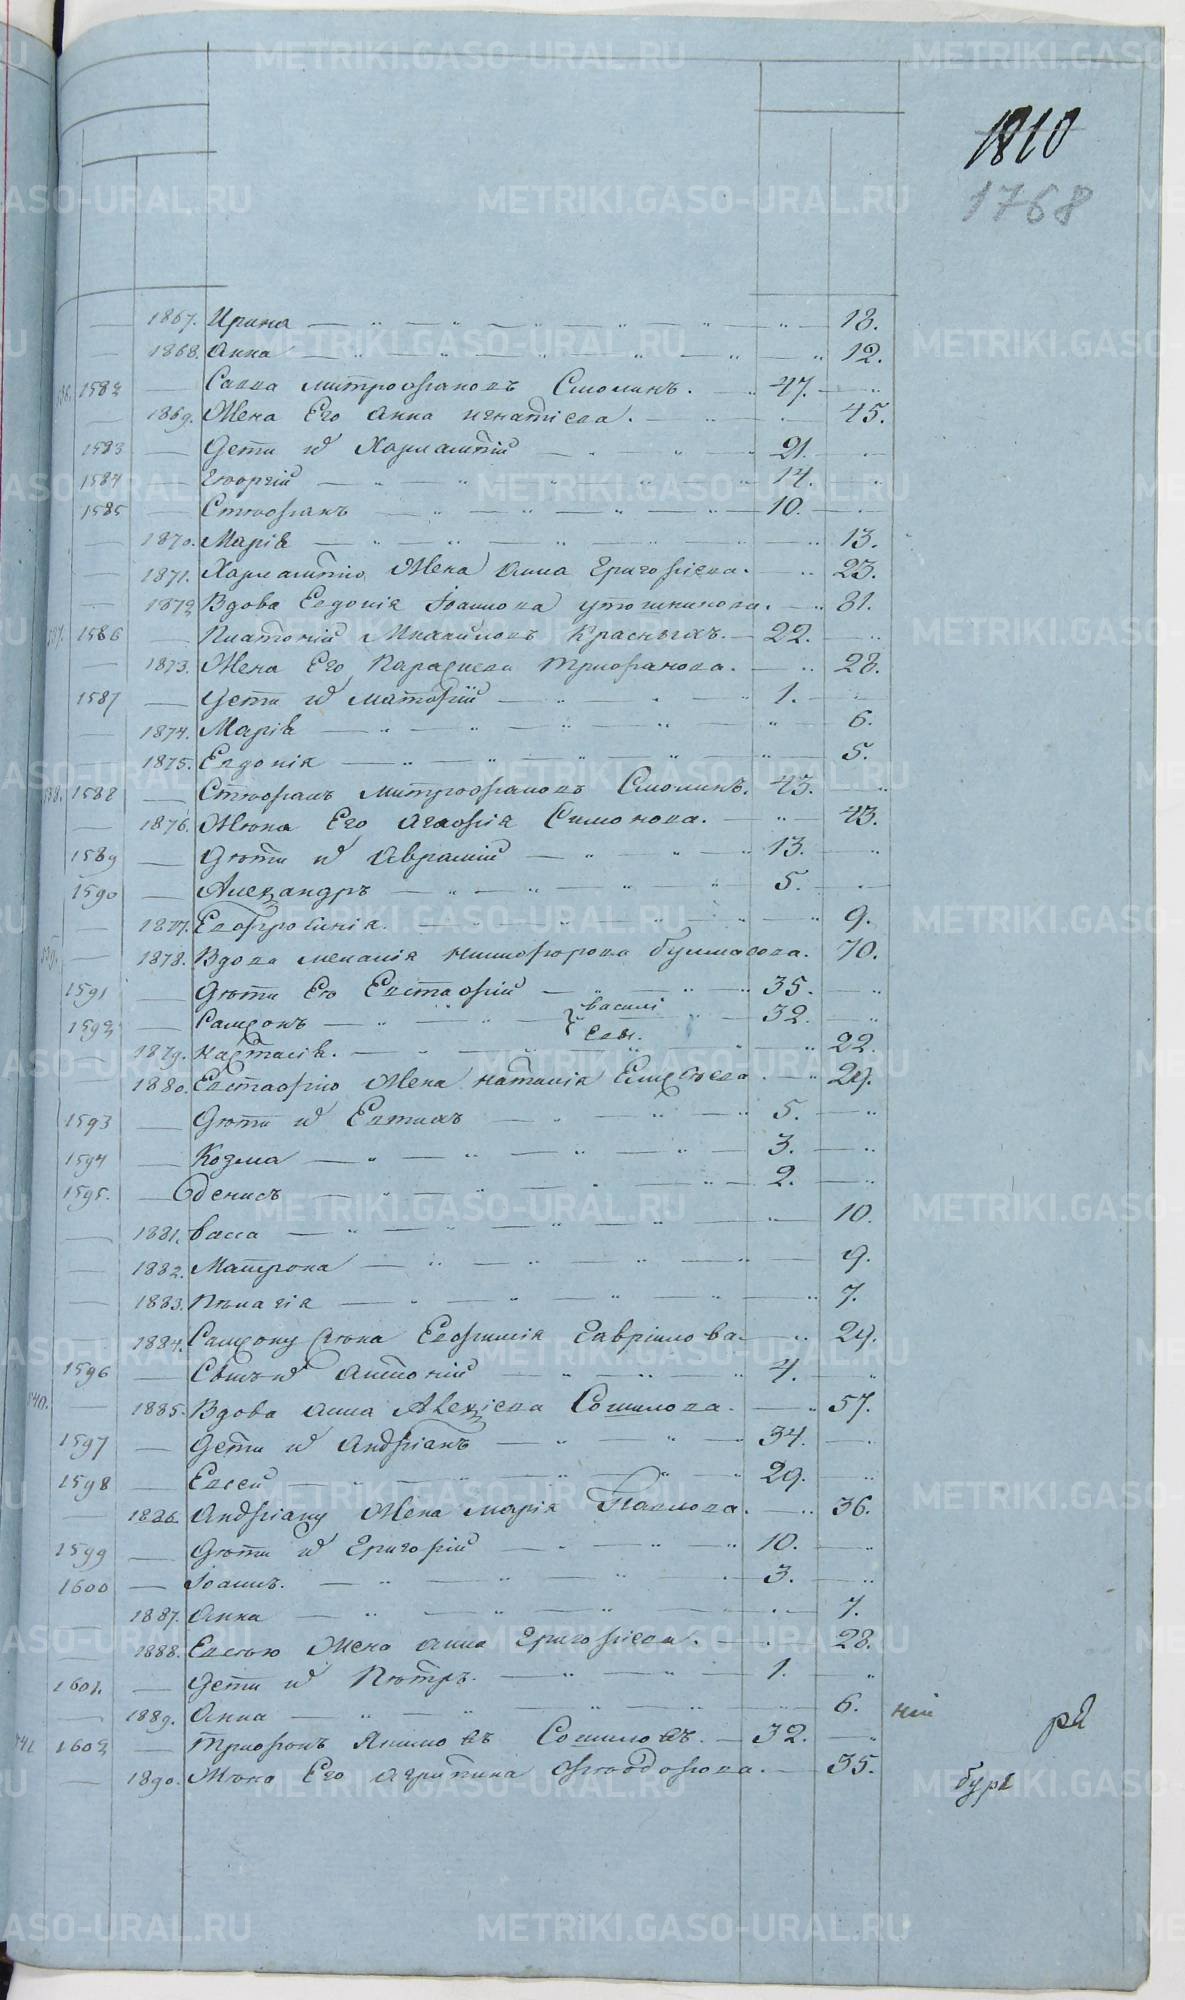 1810
1768
1867. Ирина 18.
1868. Анна 12.
1582 Савва Митрофановъ Смолинъ. 47.
1869. Жена Его Анна Игнатіева. 45.
1583 Дети и҆́ Харлампій 21.
1584 Георгій 14.
1585 Стефанъ 10.
1870. Марія 13.
1871. Харлампію Жена Анна Григоріева. 23.
1872 Вдова Евдокія Іоаннова 81.
1586 Платоній Михайловъ Красныхъ. 22.
1873. Жена Его Параскева Трифанова. 28.
1587 Дети 1.
1874. Марія 6.
1875. Евдокія 5.
538. 1588 Стефанъ Митрофановъ Смолинъ. 43.
1876. Жена Его Агафія Симонова. 43.
1589 Дѣти Аврамій 13.
1590 Александръ 5.
1877. Евфросинія. 9.
539. 1878. Вдова Меланія Никифорова Булмасова. 70.
1591 Дѣти Его Евстафій 35.
1592 Самсонъ 32.
Василі
Евд.
1879. Настасія. 22.
1880. Евстафію Жена Наталія Елисѣева 29.
1593 Дѣти Евтихъ 5.
1594 Козма 3.
1595. Денисъ 2.
1881. Васса 10.
1882. Матрона 9.
1883. Пелагія 7.
1884. Самсону Жена Евфимія Гаврілова. 29.
1596 Сынъ Антоній 4.
540. 1885. Вдова Анна Алеѯіева Сошилова. 57.
1597 Дети Андріанъ 34.
1598 Евсей 29.
1886. Андріану Жена Марія Павлова. 36.
1599 Дѣти Григорій 10.
1600 Іоаннъ. 3.
1887. Анна 7.
1888. Евсѣю Жена Анна Григоріева. 28.
1601. Дети Пѣтръ. 1.
1889. Анна 6. ній
541 1602 Трифонъ Якимовъ Сошиловъ. 32.
1890. Жена Его Агрипина Ѳеодорова. 35.
METRIKI.GASO-URAL.RU